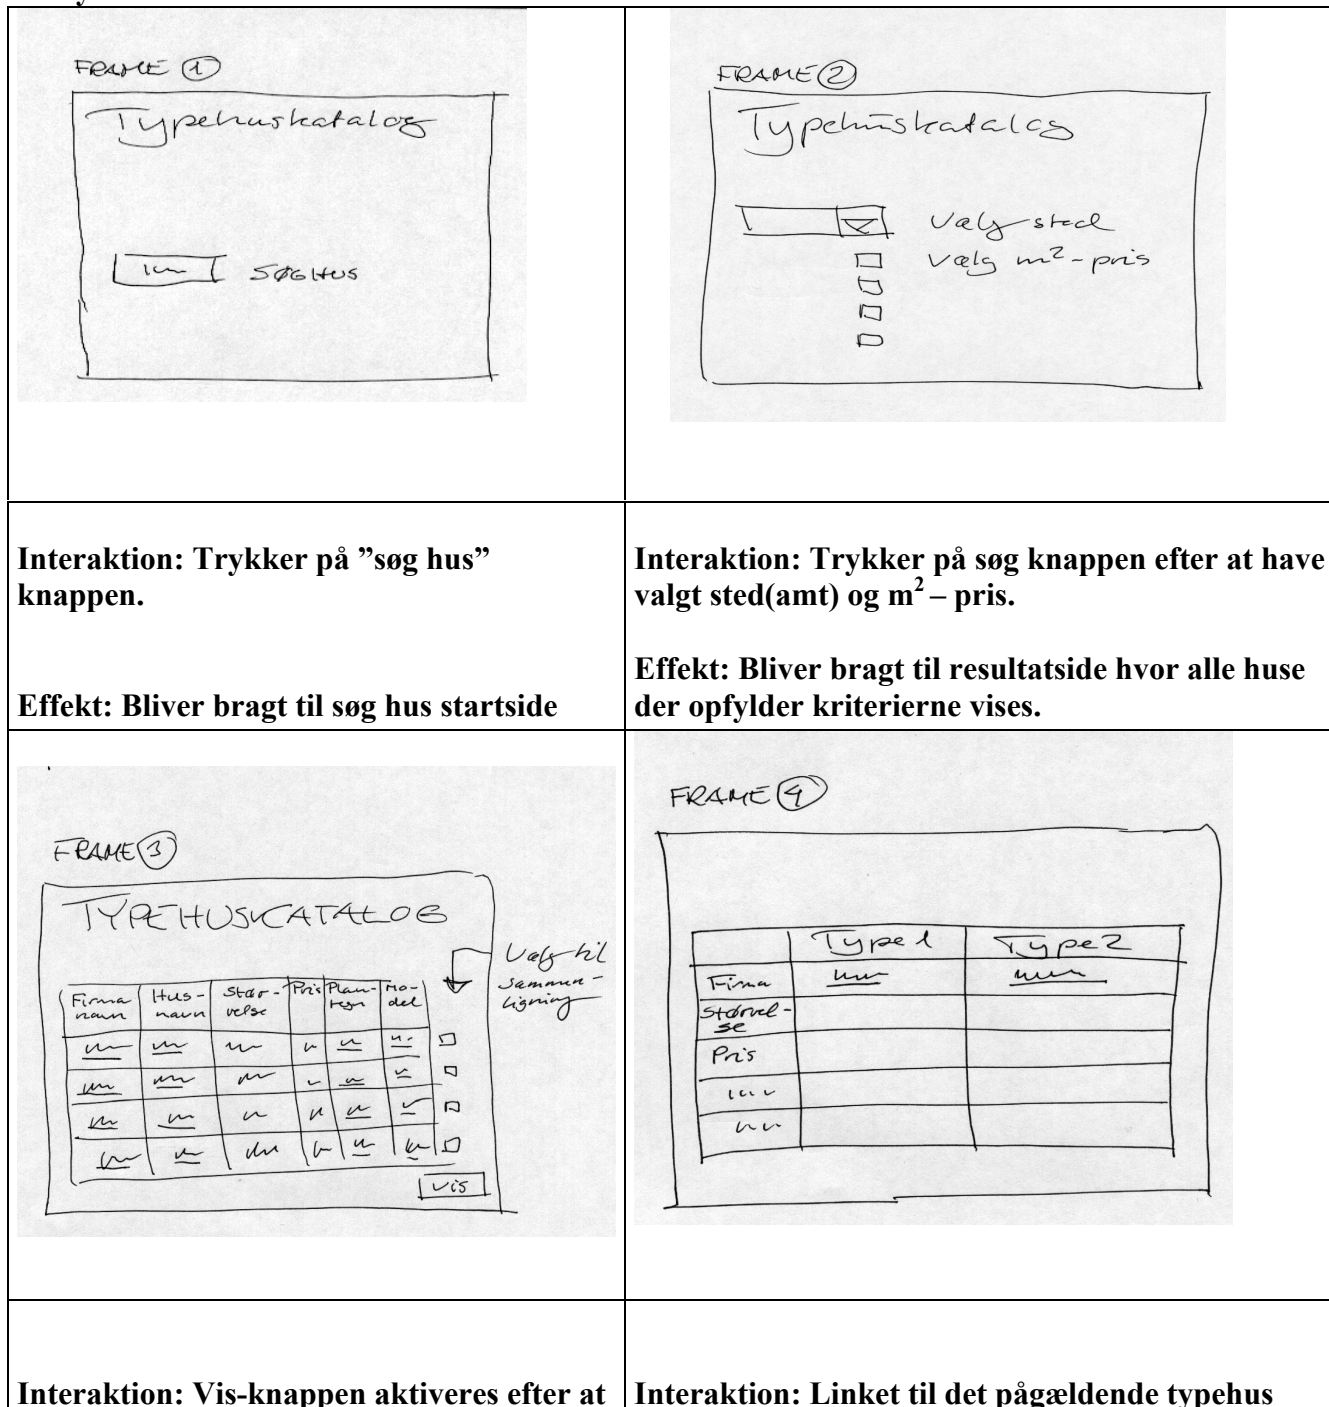 FRAME 1
Typehuskatalog
SØG HUS
FRAME 2
Typehuskatalog
Vælg sted
Vælg m²-pris
Interaktion: Trykker på ”søg hus”
knappen.
Effekt: Bliver bragt til søg hus startside
Interaktion: Trykker på søg knappen efter at have
valgt sted(amt) og m² – pris.
Effekt: Bliver bragt til resultatside hvor alle huse
der opfylder kriterierne vises.
FRAME 3
TYPEHUSKATALOG
Vælg til
sammen-
ligning
Firma navn
Hus-navn
Stør-relse
Pris
Plan-tegn
Mo-del
Vis
FRAME 4
Type 1
Type 2
Firma
Størrel-
se
Pris
Interaktion: Vis-knappen aktiveres efter at
Interaktion: Linket til det pågældende typehus